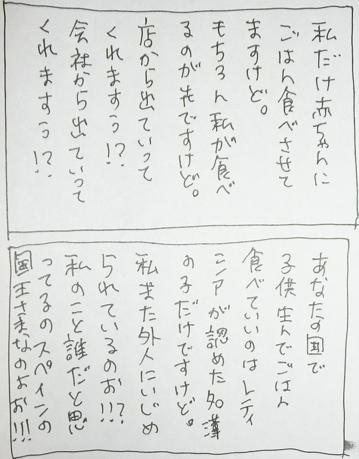 私だけ赤ちゃんに
ごはん食べさせて
ますけど。
もちろん私が食べ
るのが先ですけど。
店から出ていって
くれますぅ!?
会社から出ていって
くれますぅ!?
あなたの国で
子供生んでごはん
食べていいのはレティ
シアが認めた名簿
の子だけですけど。
私また外人にいじめ
られているのお!!?
私のこと誰だと思
ってるのスペインの
国王さまなのよお!!!